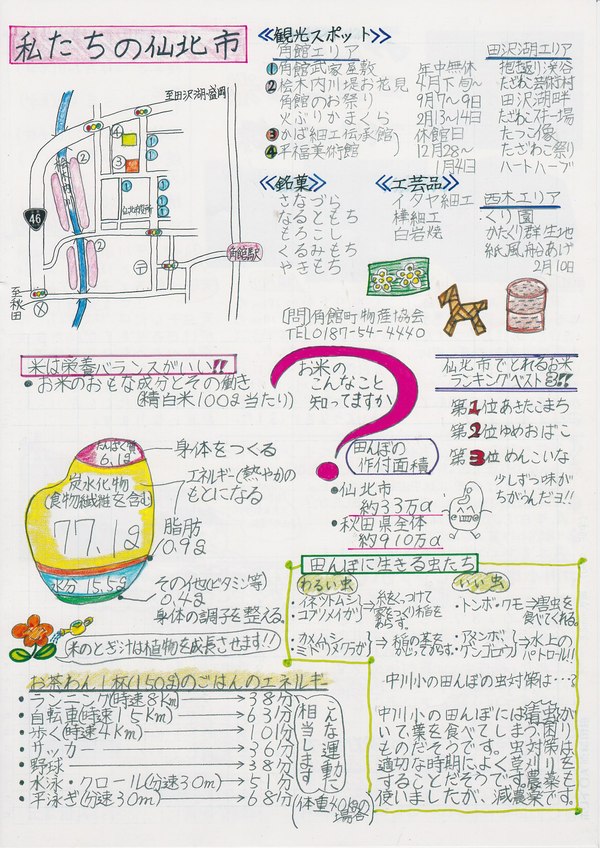 私たちの仙北市
至田沢湖・盛岡
桧木内川
46
仙北市役所
角館駅
至秋田
≪観光スポット≫
角館エリア
①角館武家屋敷 年中無休
②桧木内川堤お花見 4月下旬〜
角館のお祭り 9月7〜9日
火ぶりかまくら 2月13〜14日
③かば細工伝承館
④平福美術館
休館日
12月28〜
1月4日
田沢湖エリア
抱き返り渓谷
たざわこ芸術村
田沢湖畔
たざわこスキー場
たつこ像
たざわこ祭り
ハートハーブ
≪銘菓≫
さなづら
なるともち
もろこし
くるみもち
やきもち
≪工芸品≫
イタヤ細工
樺細工
白岩焼
西木エリア
くり園
かたくり群生地
紙風船あげ
2月10日
〔問〕角館町物産協会
TEL0187-54-4440
米は栄養バランスがいい!!
・お米のおもな成分とその働き
(精白米100g当たり)
たんぱく質
6.1g
身体をつくる
炭水化物
(食物繊維を含む)
77.1g
エネルギー(熱や力)の
もとになる
脂肪
0.9g
水分 15.5g
その他(ビタミン等)
0.4g
身体の調子を整える。
米のとぎ汁は植物を成長させます!!
お米の
こんなこと
知ってますか
?
田んぼの
作付面積
・仙北市
約33万a
・秋田県全体
約910万a
仙北市でとれるお米
ランキングベスト3!!
第1位あきたこまち
第2位ゆめおばこ
第3位めんこいな
少しずつ味が
ちがうんだヨ!!
お茶わん1杯(150g)のごはんのエネルギー
・ランニング(時速8Km)→38分
・自転車(時速15Km)→63分
・歩く(時速4Km)→101分
・サッカー→36分
・野球→38分
・水泳・クロール(分速30m)→51分
・平泳ぎ(分速30m)→68分
こんな運動に
相当します
(体重40kgの
場合)
田んぼに生きる虫たち
わるい虫
・イネツトムシ
コブノメイガ
⇒糸をくっつけて
家をつくり稲を
あらす。
・カメムシ
ミドリメクラガメ
⇒稲の茎を
吸ってからす。
いい虫
・トンボ・クモ⇒害虫を
食べてくれる。
・アメンボ
ゲンゴロウ
⇒水上の
パトロール!!
中川小の田んぼの虫対策は…?
中川小の田んぼには青虫が
いて葉を食べてしまう困り
ものだそうです。虫対策は
適切な時期によく草刈りを
することだそうです。農薬も
使いましたが、減農薬です。